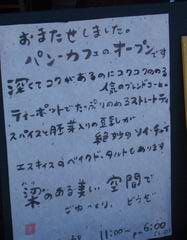 おまたせしました。
パン・カフェのオープンです
深くてコクがあるのにコクコクのめる
人気のブレンドコーヒー
ティーポットでたっぷりのめるストレートティ
スパイスと胚芽入りの豆乳が
絶妙のソイ・チャイ
エスキィスのベイクド・タルトもあります
梁のある美しい空間で
ごゆっくり、どうぞ
11:00 - pm 6:00